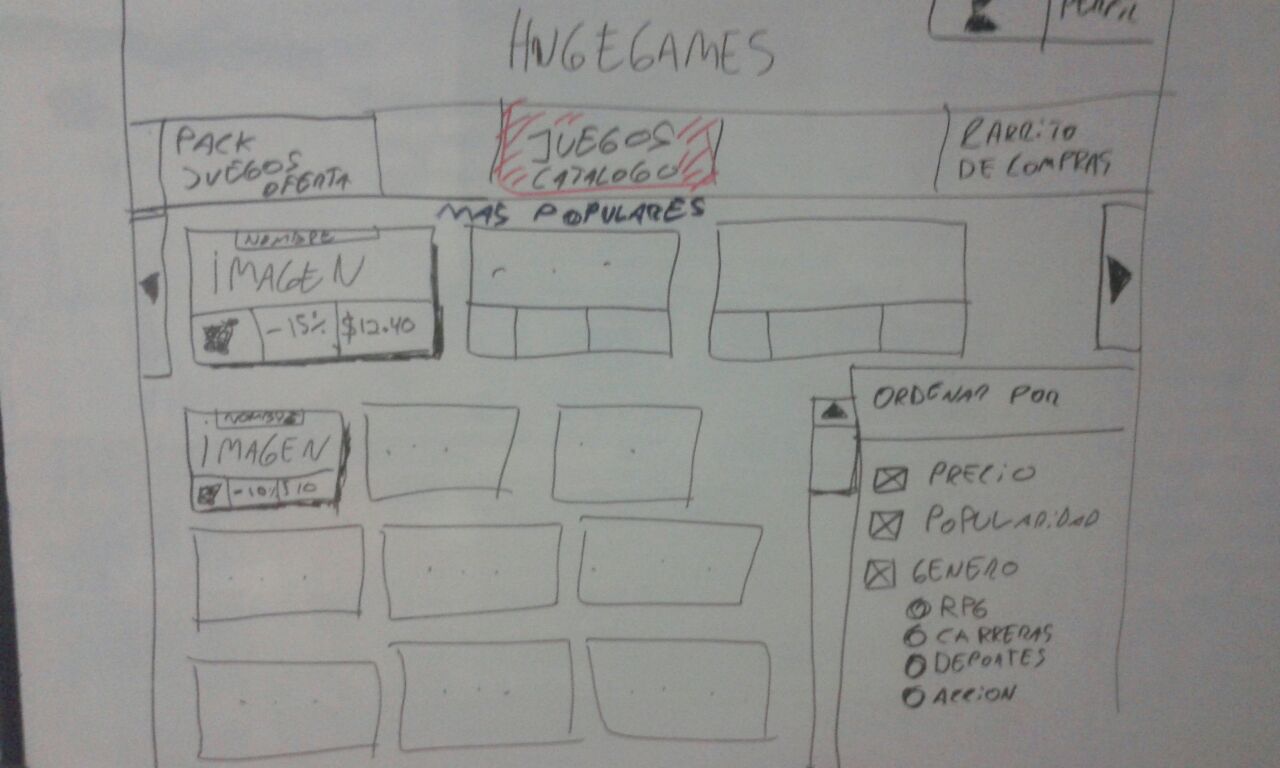 HNGEGAMES
PERFIL
PACK
JUEGOS
OFERTA
JUEGOS
CATALOGO
CARRITO
DE COMPRAS
MAS POPULARES
NOMBRE
IMAGEN
-15% $12.40
NOMBRE
IMAGEN
-10% $10
ORDENAR POR
PRECIO
POPULARIDAD
GENERO
RPG
CARRERAS
DEPORTES
ACCION